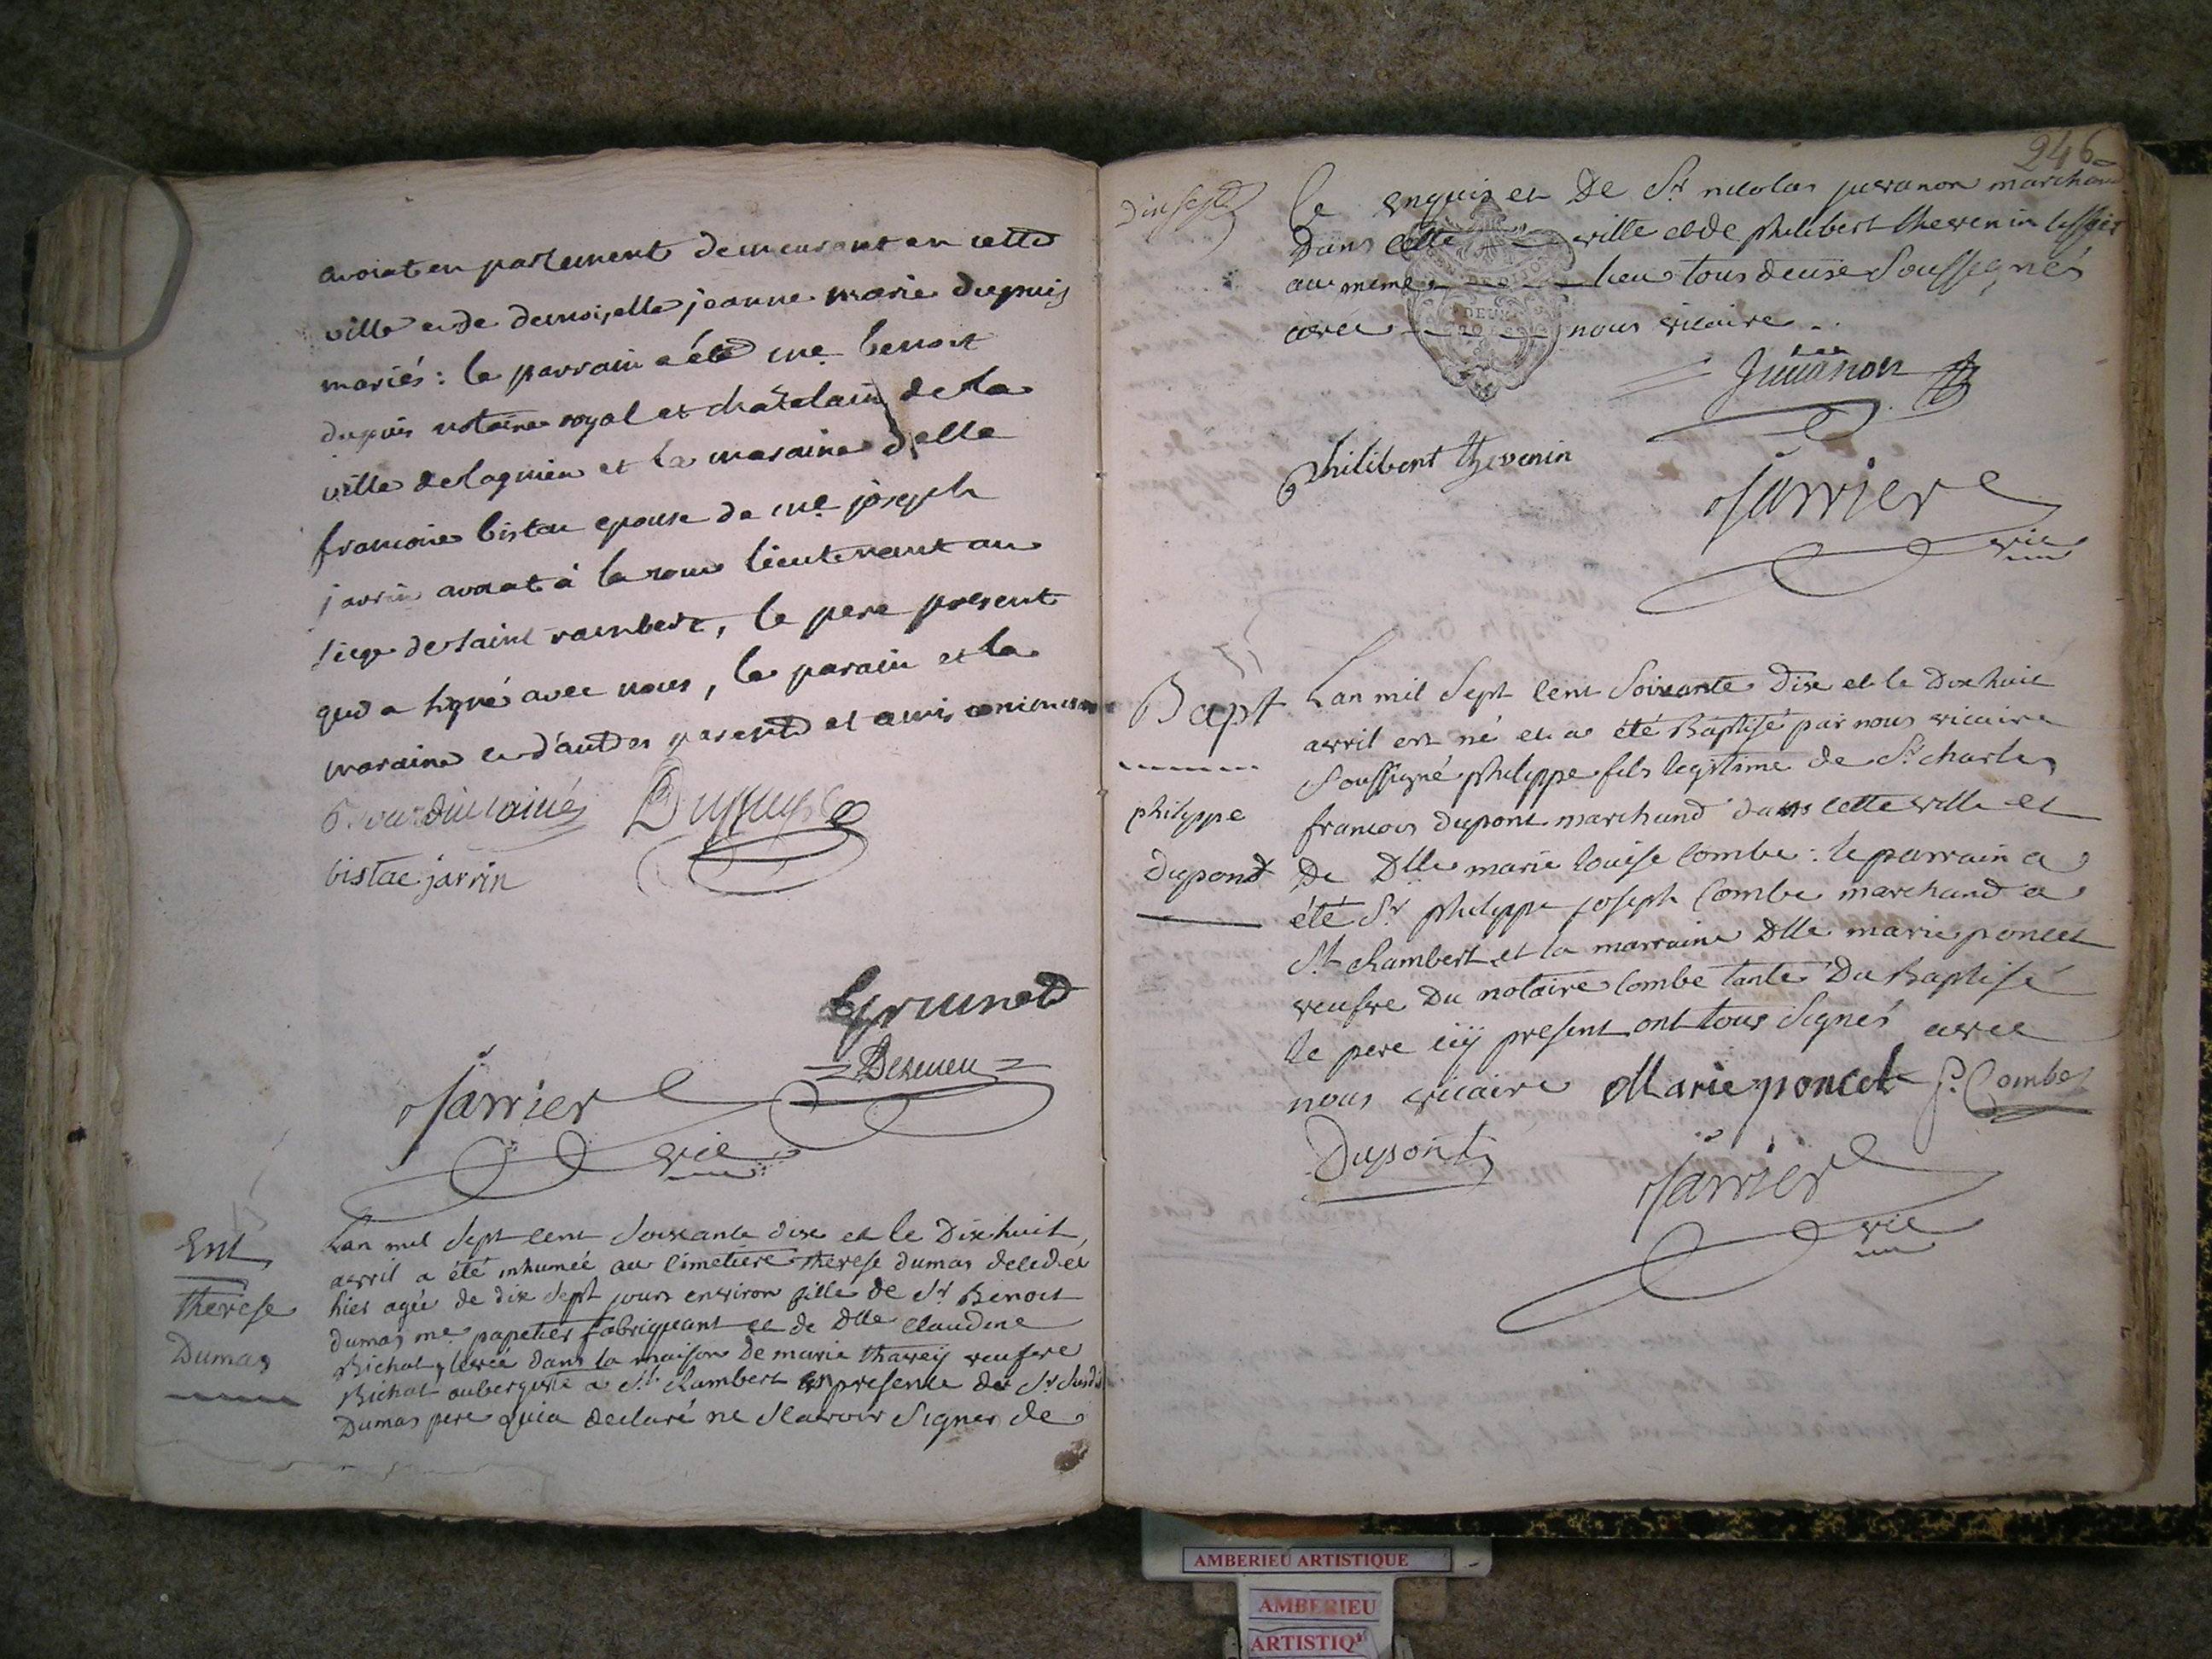 avocat en parlement demeurant en cette
ville et de demoiselle jeanne marie dupuis
mariés : le parrain a été me benoit
dupuis notaire royal et chatelain de la
ville de lagnieu et la maraine delle
francoise bistac epouse de me joseph
jarrin avocat à la cour lieutenant au
siege de saint rambert, le pere present
qui a signé avec nous, le parain et la
maraine et d'autres parents et amis
Dupuis
bistac jarrin
Brunet
Jarrier
vic
Ent
therese
Dumas
Lan mil sept cent soixante dix et le dix huit
avril a été inhumée au cimetiere therese dumas decedée
hier agée de dix sept jours environ fille de Sr Benoit
dumas me papetier fabriquant et de Dlle claudine
Bichat, levée dans la maison de marie tharey veufve
Bichat aubergiste a St Rambert en presence du Sr susdit
Dumas pere qui a declaré ne scavoir signer de
246
Ce enquis et De Sr nicolas juvanon marchand
Dans cette ville et de philibert thevenin
au meme lieu tous deux soussignés
avec nous vicaire
Juvanon
philibert thevenin
Jarrier
vic
Bapt
philippe
dupont
Lan mil sept cent soixante dix et le dix huit
avril est né et a été Baptisé par nous vicaire
soussigné philippe fils legitime de Sr charles
francois dupont marchand dans cette ville et
De Dlle marie louise Combe : le parrain a
été Sr philippe joseph Combe marchand a
St Rambert et la marraine Dlle marie poncet
veufve Du notaire Combe tante Du Baptisé
le pere icy present ont tous signés avec
nous vicaire Marie poncet P. Combe
Dupont
Jarrier
vic
AMBERIEU ARTISTIQUE
AMBERIEU
ARTISTIQ